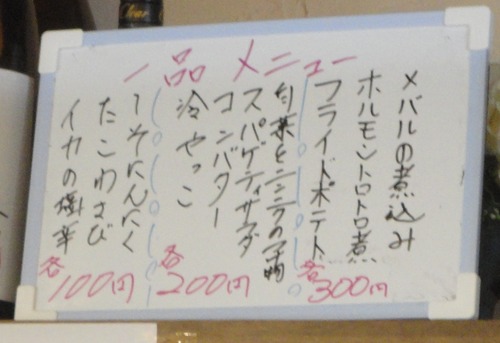 一品メニュー
メバルの煮込み
ホルモントロトロ煮
フライドポテト
各300円
スパゲティサラダ
コンバター
冷やっこ
各200円
しそにんにく
たこわさび
イカの塩辛
各100円